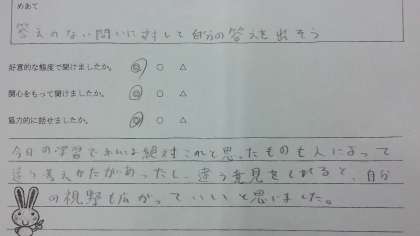 めあて
答えのない問いに対して自分の答えを出そう
好意的な態度で聞けましたか。 ◎ ○ △
関心をもって聞けましたか。 ◎ ○ △
協力的に話せましたか。 ◎ ○ △
今日の学習でわたしは絶対これと思ったものも人によって
違う考えかたがあったし、違う意見をくれると、自分
の視野も広がっていいと思いました。